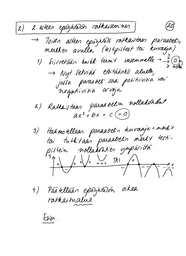 2) 2. asteen epäyhtälön ratkaiseminen
→ Toisen asteen epäyhtälö ratkaistaan paraabelin
merkkien avulla (testipisteet tai kuvaaja)
1) Siirretään kaikki termit vasemmalle
→ Nyt selvitä etsitään alueet,
jossa paraabeli saa positiivisia vai
negatiivisia arvoja
2) Ratkaistaan paraabelin nollakohdat
ax² + bx + c = 0
3) Hahmotellaan paraabelin kuvaaja + merkit
tai tutkitaan paraabelin merkit testi-
pistein nollakohtien ympäriltä
TAI
4) Päätellään epäyhtälön oikea
ratkaisualue.
Esim.